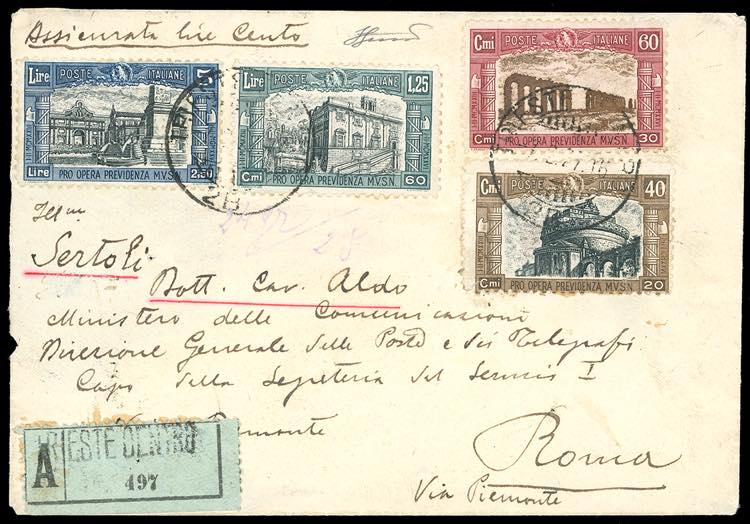 Assicurata lire Cento
Lire POSTE ITALIANE 5
Lire PRO OPERA PREVIDENZA M.V.S.N. 2,50
Lire POSTE ITALIANE 1,25
Cmi PRO OPERA PREVIDENZA M.V.S.N. 60
Cmi POSTE ITALIANE 60
Cmi PRO OPERA PREVIDENZA M.V.S.N. 30
Cmi POSTE ITALIANE 40
Cmi PRO OPERA PREVIDENZA M.V.S.N. 20
2B
Ill mo
Sertoli
Dott. Cav. Aldo
Ministero delle Comunicazioni
Direzione Generale delle Poste e dei Telegrafi
Capo della Segreteria del Servizio I
Piemonte
TRIESTE CENTRO
A
497
Roma
Via Piemonte